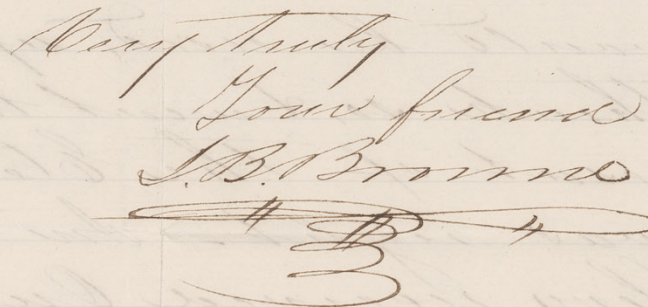 Very truly
Your friend
J. B. Browne